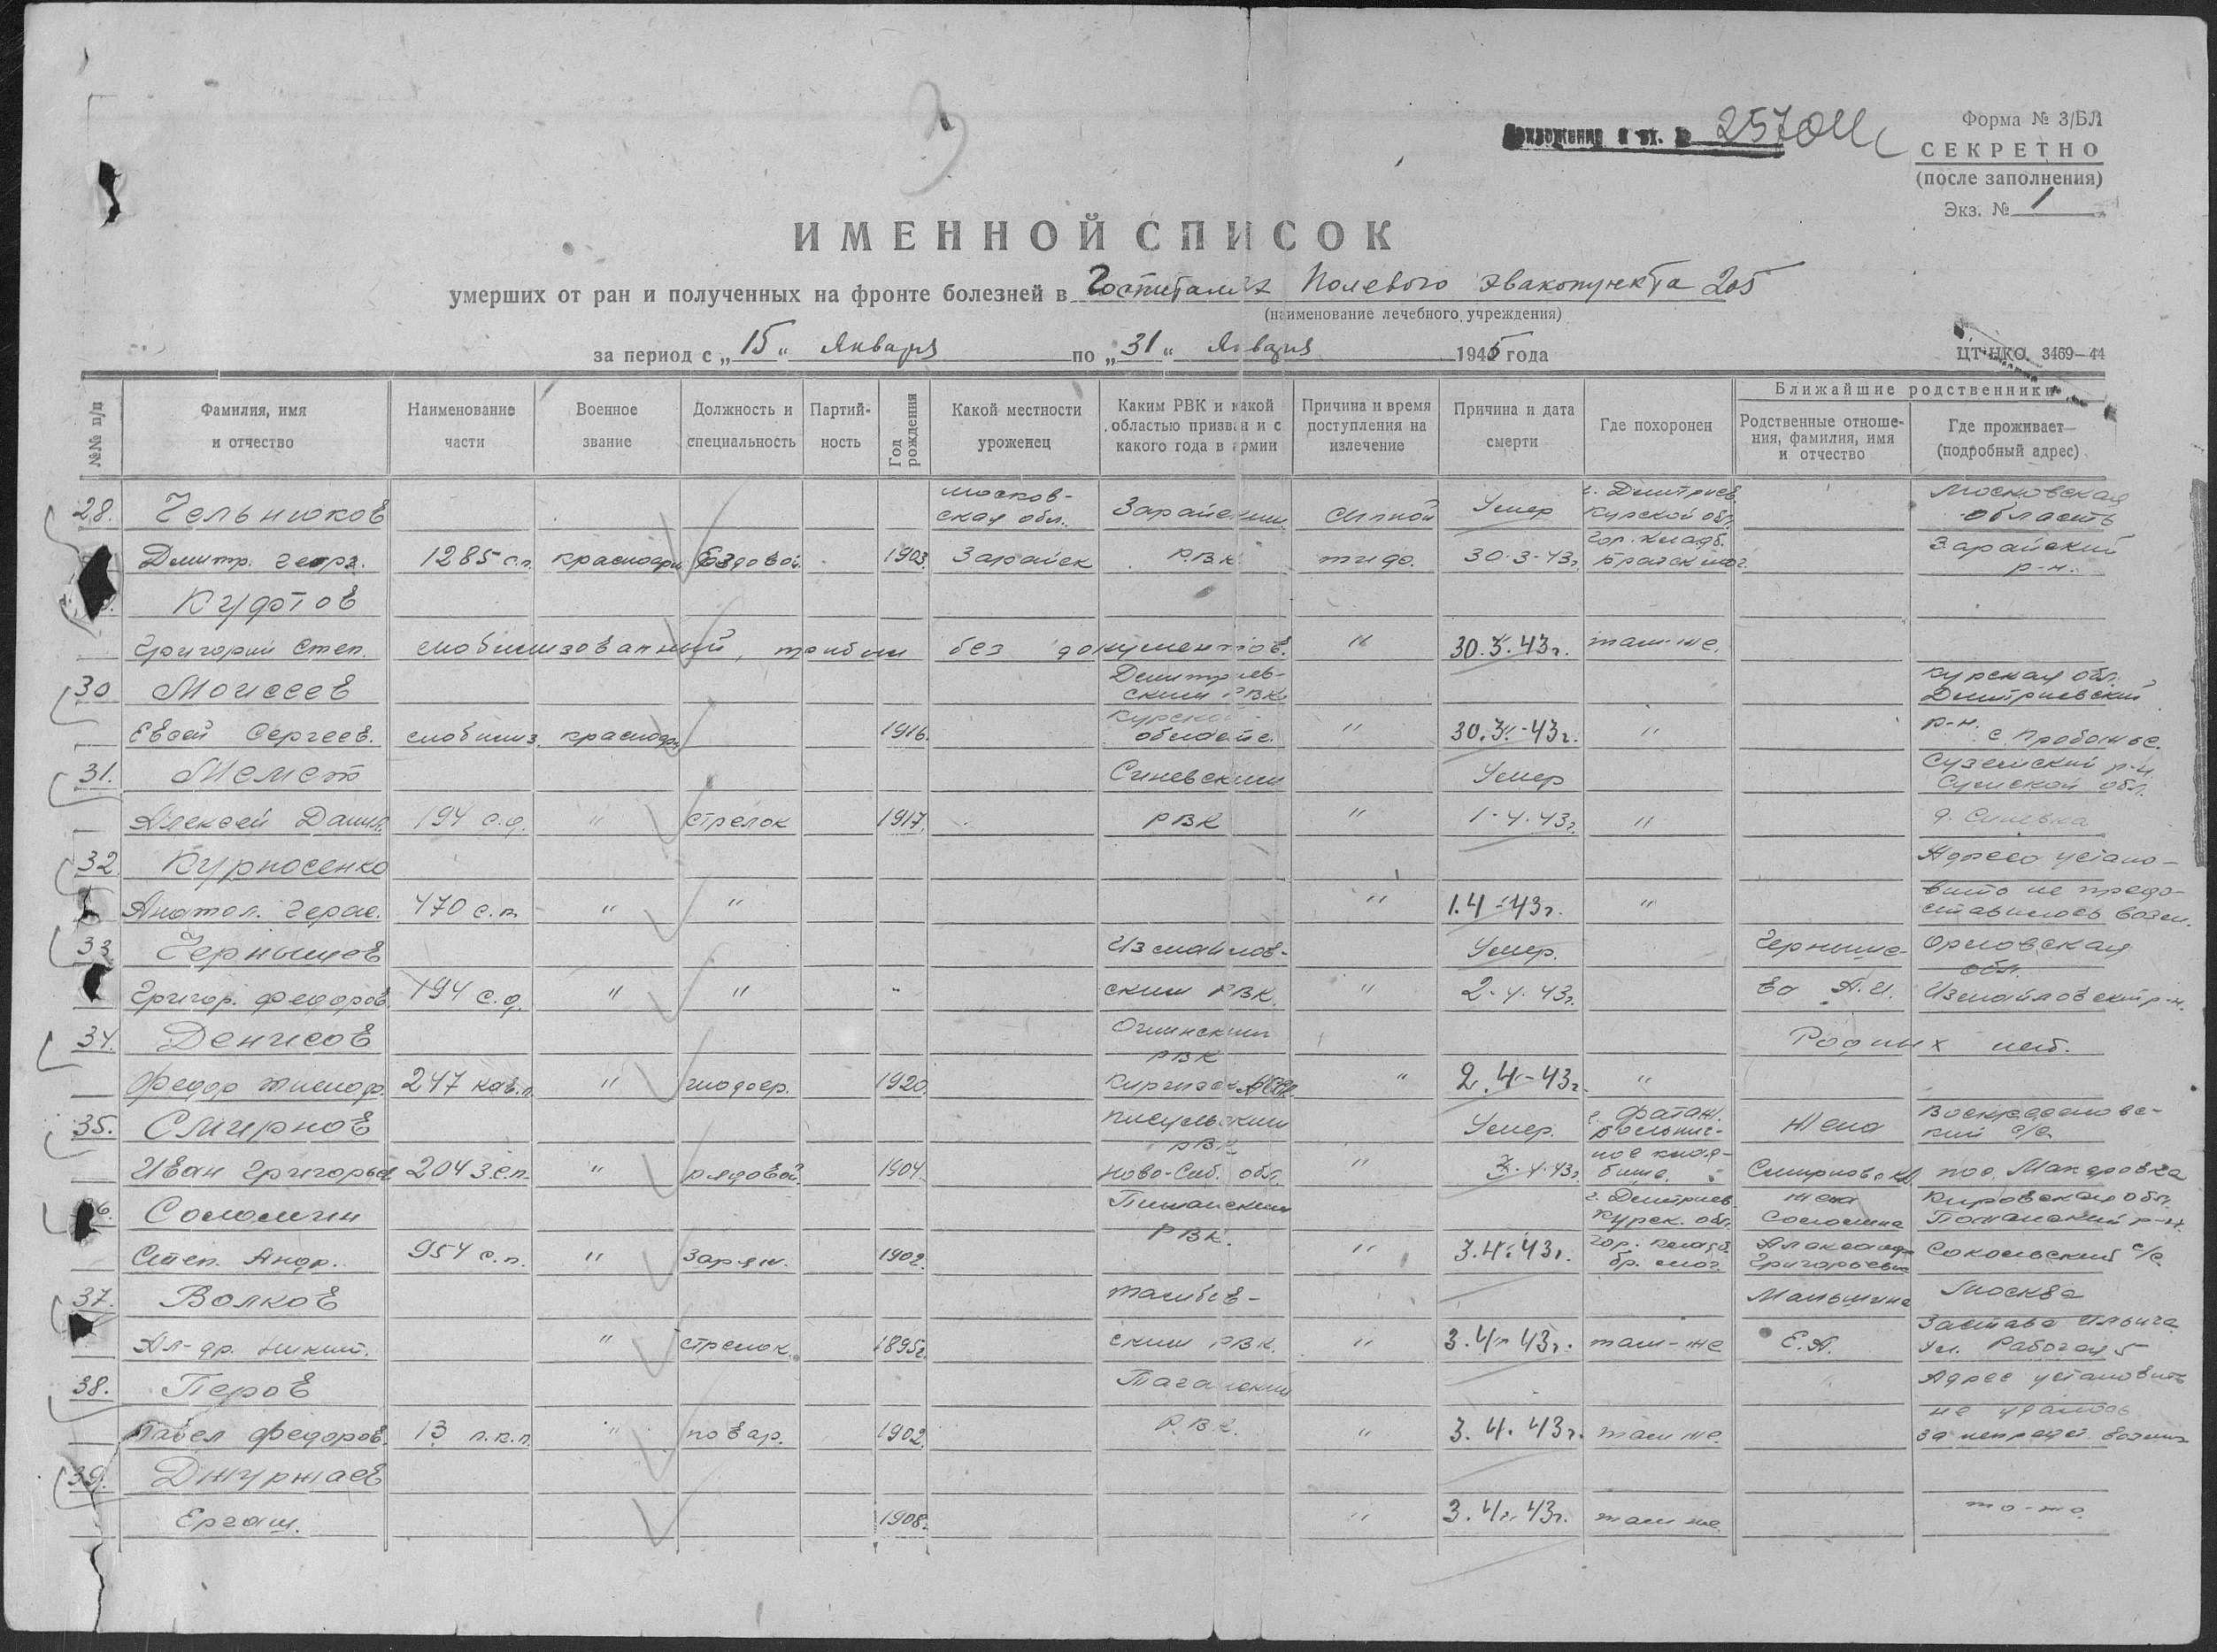 Приложение к вх. № 25701с
Форма № 3/БЛ
СЕКРЕТНО
(после заполнения)
Экз. № 1
ИМЕННОЙ СПИСОК
умерших от ран и полученных на фронте болезней в Госпиталях Полевого Эвакопункта 205
(наименование лечебного учреждения)
за период с „15" Января по „31" Января 1945 года
ЦТ НКО 3469—44
№№ п/п
Фамилия, имя и отчество
Наименование части
Военное звание
Должность и специальность
Партийность
Год рождения
Какой местности уроженец
Каким РВК и какой областью призван и с какого года в армии
Причина и время поступления на излечение
Причина и дата смерти
Где похоронен
Ближайшие родственники
Родственные отношения, фамилия, имя и отчество
Где проживает (подробный адрес)
28. Чельноков москов- Зарайским сыпной Умер г. Дмитриев Московская
ская обл. Курской обл. область
Дмитр. Геор. 1285 с.п. красноарм Ездовой 1903. Зарайск Р.В.К. тиф. 30-3-43г. гор. кладб. Зарайский
братск мог. р-н.
Кудотов
Григорий Степ. мобилизованный, прибыл без документов. " 30.3.43г. там-же.
30 Моисеев Дмитриев- Курская обл.
ским РВК Дмитриевский
Евсей Сергеев. мобилиз. красноар 1916. Курской " 30.3-43г. " р-н.
области.
31. Мемет Синевским Умер Сумской обл.
Алексей Данил. 194 с.д. " стрелок 1917. РВК " 1-4-43г. " д. Синевка
32 Курносенко Адреса устано-
Анатол. Герас. 470 с.п. " " " 1.4-43г. " вить не предо-
ставилось возм.
33. Чернышев Измайлов- Умер. Черныше- Орловская
обл.
Григор. Федоров. 194 с.д. " " " ским РВК. " 2-4-43г. ва А.И. Измайловский р-н.
34. Денисов РВК Родных нет.
Федор Тимоф. 247 кав.п. " 1920. " 2.4-43г. "
35. Смирнов РВК Умер. г. Фатеж. Жена
Иван Григорьев 204 з.с.п. " рядовой 1904. Ново-Сиб. обл. " 3-4-43г. Смирнова пос. Макаровка
36. Соломин РВК. г. Дмитриев Жена Кировская обл.
Курск. обл. Соломина р-н.
Степ. Андр. 954 с.п. " Заряж. 1902. " 3.4.43г. гор. кладб. Александр Сокольский с/с
бр. мог. Григорьевна
37. Волков Тамбов- Маньшина Москва
Застава Ильича
Ал-др. Никит. " стрелок. 1895г. ским РВК. " 3.4-43г. там-же Е.А. ул. Рабочая 5
38. Перов Адрес установить
Павел Федоров. 13 " повар. 1902. Р.В.К. " 3.4.43г. там же. не удалось
39. Джуржаев
Ергаш. 1908. " 3.4.43г. там же. то-же